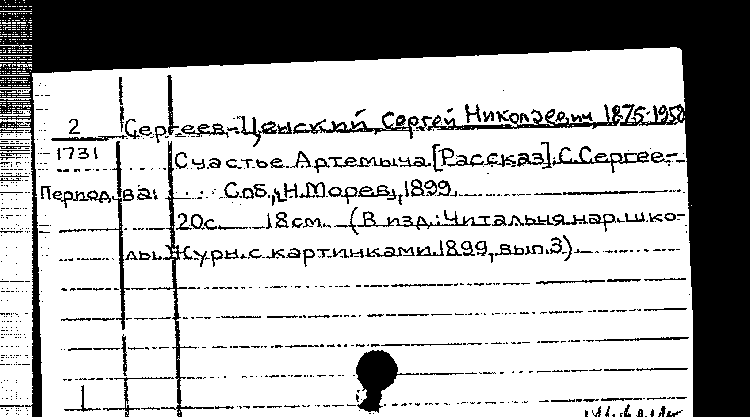 2 Сергеев-Ценский, Сергей Николаевич, 1875-1958
1731 Счастье Артемыча. [Рассказ]. С. Сергее-
Период. ва. Спб., Н. Морев, 1899.
20с. 18см. (В изд.: Читальня нар. шко-
лы. Журн. с картинками. 1899, вып. 3).